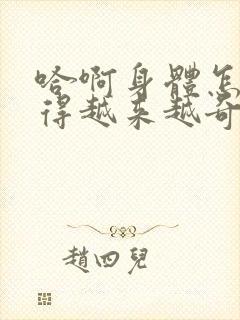 哈啊身體怎
得越来越奇
趙四兒